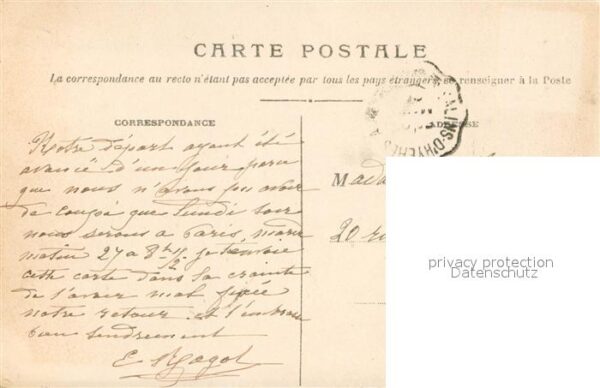 CARTE POSTALE
La correspondance au recto n'étant pas acceptée par tous les pays étrangers, se renseigner à la Poste
CORRESPONDANCE
ADRESSE
SALINS-D'HYÈRES
Notre départ ayant été
avancé d'un jour parce
que nous n'avons pas
de congé que Lundi soir
nous serons à Paris, mardi
matin 27 a 8h ½. je t'envoie
cette carte dans la crainte
de t'avoir mal fixée
notre retour. et t'embrasse
bien tendrement
E.
Mada
20 ru
privacy protection
Datenschutz